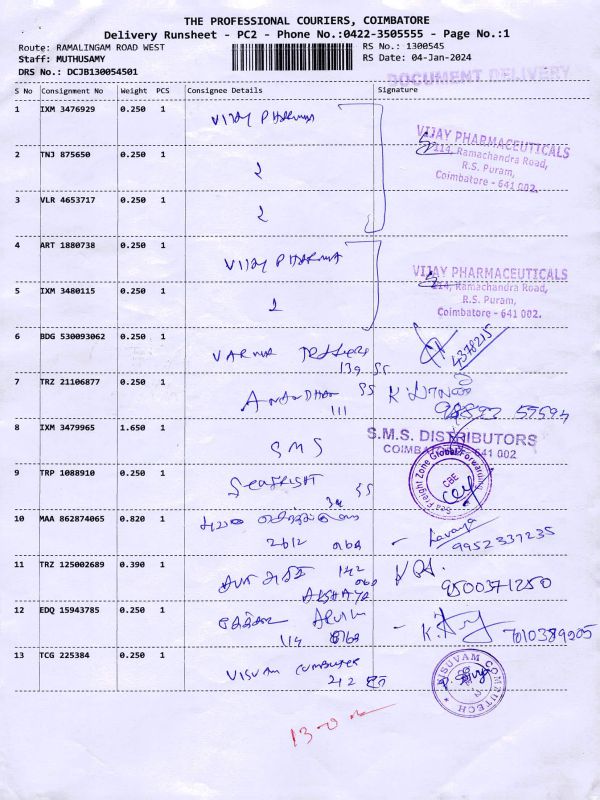 THE PROFESSIONAL COURIERS, COIMBATORE
Delivery Runsheet - PC2 - Phone No.:0422-3505555 - Page No.:1
Route: RAMALINGAM ROAD WEST
RS No.: 1300545
Staff: MUTHUSAMY
RS Date: 04-Jan-2024
DRS No.: DCJB130054501
DOCUMENT DELIVERY
S No Consignment No Weight PCS Consignee Details Signature
1 IXM 3476929 0.250 1 VIJAY PHARMA
VIJAY PHARMACEUTICALS
114, Ramachandra Road,
R.S. Puram,
Coimbatore - 641 002.
2 TNJ 875650 0.250 1
3 VLR 4653717 0.250 1
4 ART 1880738 0.250 1 VIJAY PHARMA
VIJAY PHARMACEUTICALS
214, Ramachandra Road,
R.S. Puram,
Coimbatore - 641 002.
5 IXM 3480115 0.250 1
6 BDG 530093062 0.250 1
139 SS
4378215
7 TRZ 21106877 0.250 1 ANANDHAN SS
111
8 IXM 3479965 1.650 1 SMS
S.M.S. DISTRIBUTORS
COIMBATORE - 641 002
9 TRP 1088910 0.250 1
Sea Freight Zone Global Forwarding
CBE
10 MAA 862874065 0.820 1
Lavanya
9952337235
11 TRZ 125002689 0.390 1 142
AKSHAYA
9500371250
12 EDQ 15943785 0.250 1 ARUN
114
7010389005
13 TCG 225384 0.250 1 VISUVAM COMPUTER
212
VISUVAM COMPUTECH